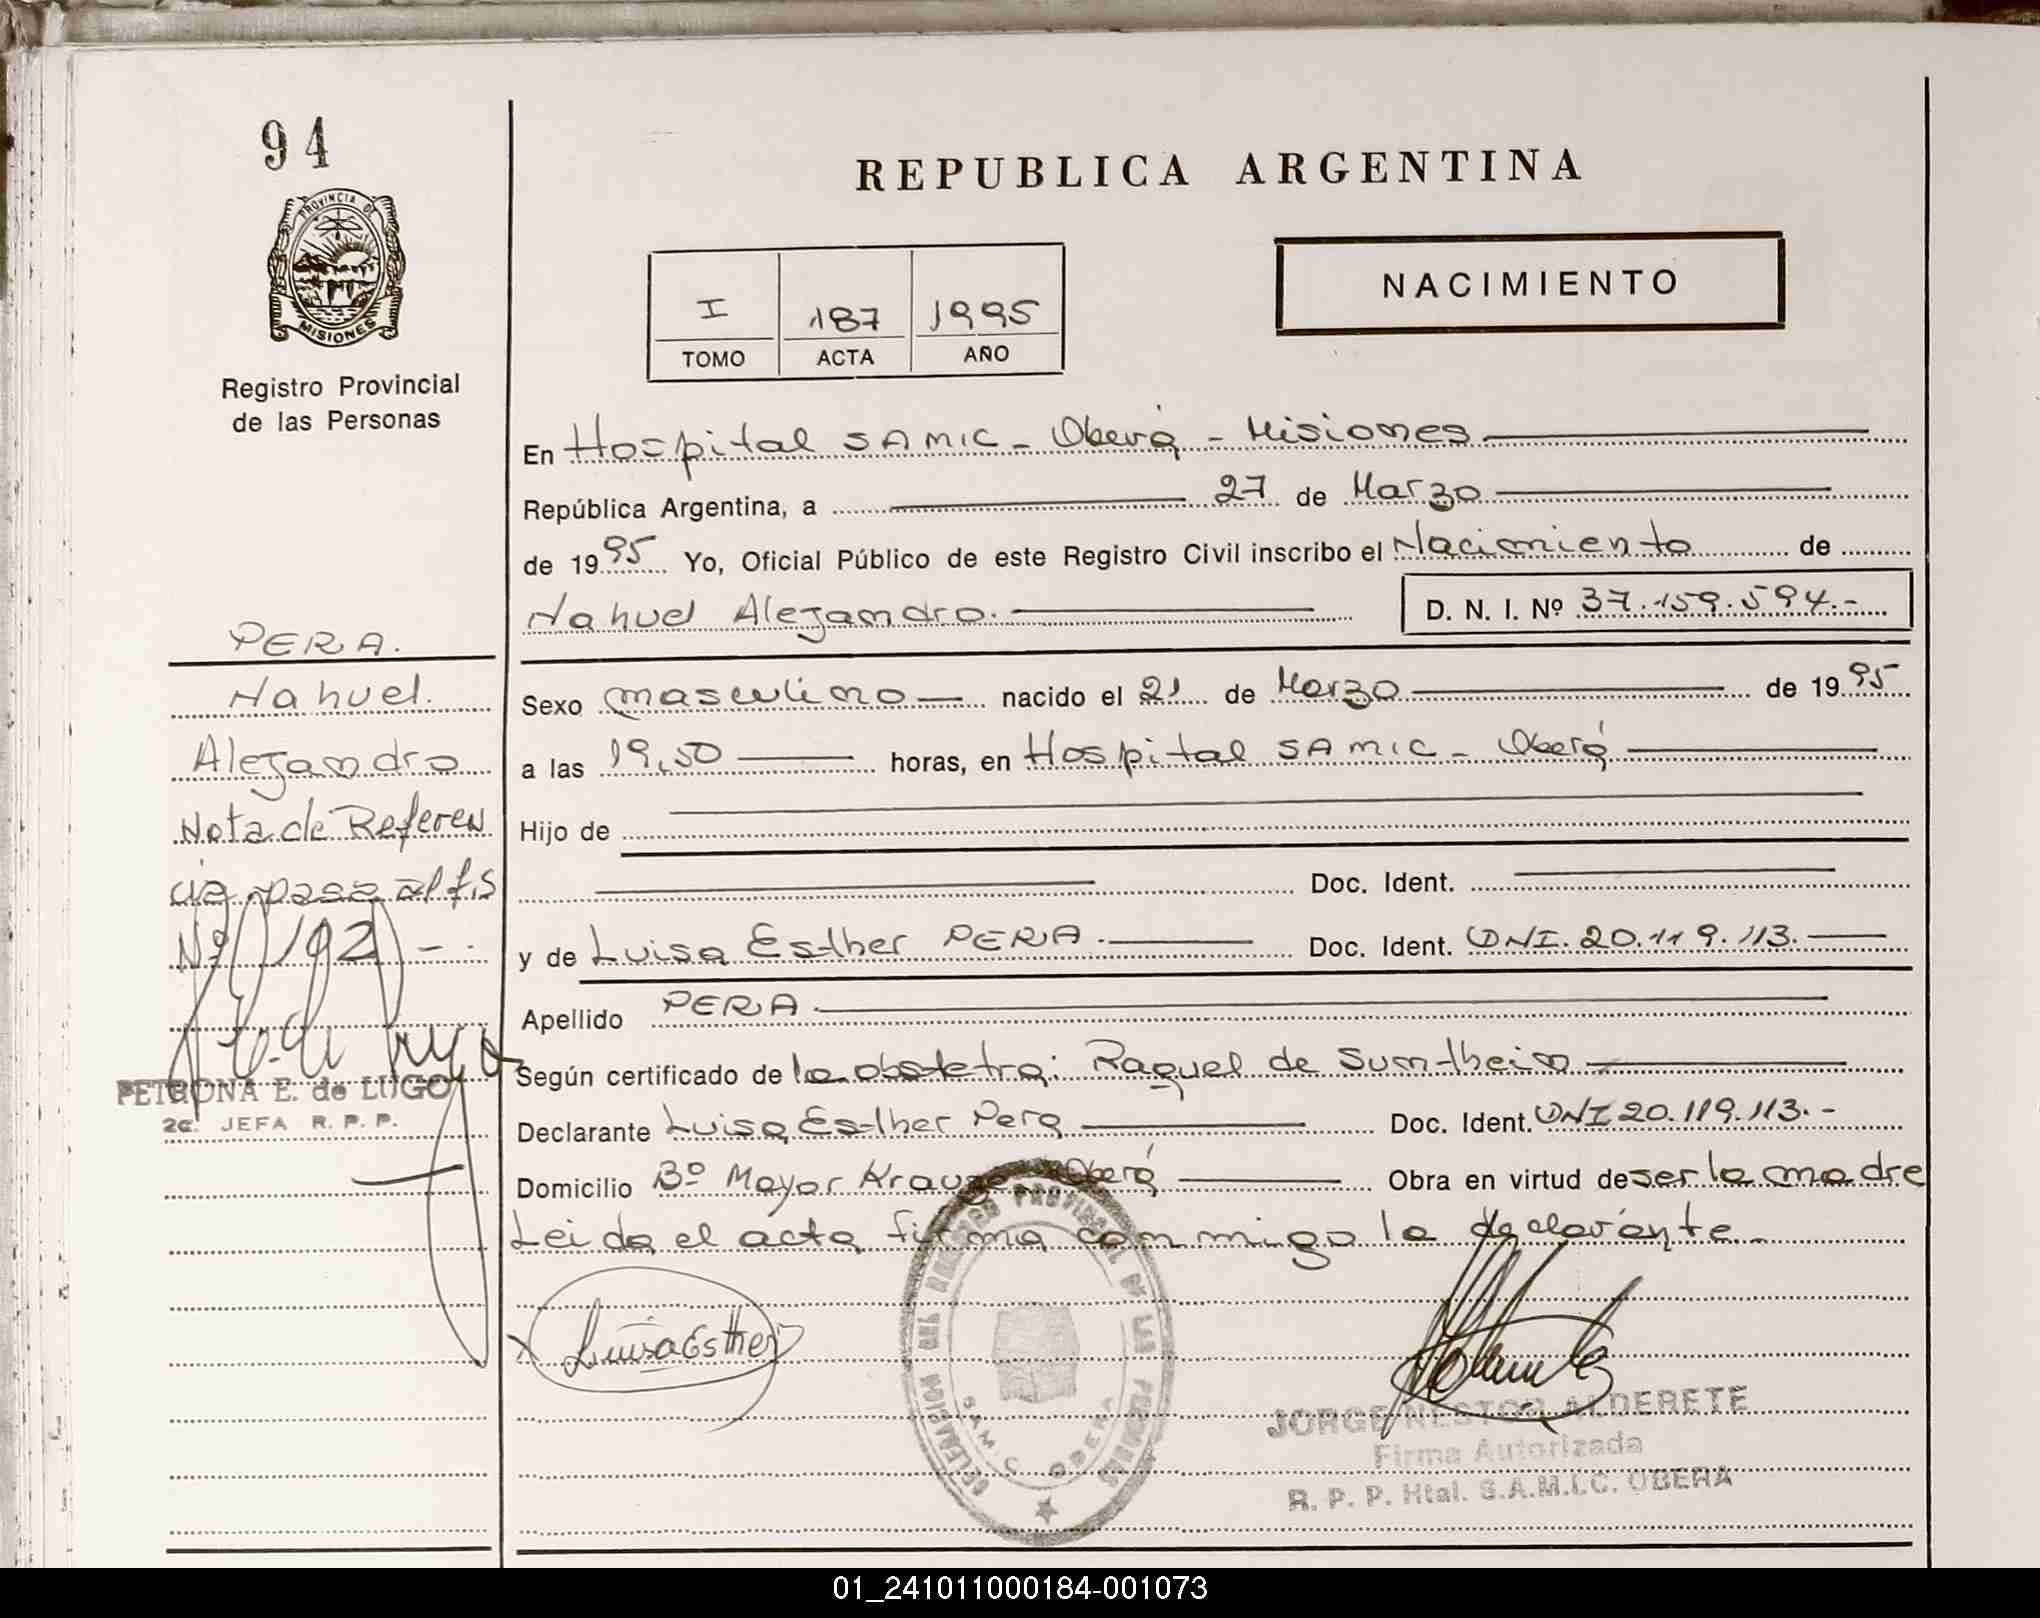 94
PROVINCIA DE
MISIONES
Registro Provincial
de las Personas
PERA.
Nahuel.
Alejandro
Nota de Referen
cia pasa al f.s
Nº (192) -.
PETRONA E. de LUGO
2a. JEFA R. P. P.
REPUBLICA ARGENTINA
NACIMIENTO
I 187 1995
TOMO ACTA AÑO
En Hospital SAMIC - Oberá - Misiones
República Argentina, a 27 de Marzo
de 1995 Yo, Oficial Público de este Registro Civil inscribo el Nacimiento de
Nahuel Alejandro. D. N. I. Nº 37.159.594.-
Sexo masculino nacido el 21 de Marzo de 1995
a las 19,50 horas, en Hospital SAMIC - Oberá
Hijo de
Doc. Ident.
y de Luisa Esther PERA. Doc. Ident. DNI. 20.119.113.
Apellido PERA
Según certificado de la obstetra: Raquel de Sumtheim
Declarante Luisa Esther Pera Doc. Ident. DNI 20.119.113.-
Domicilio Bº Mayor Krause Oberá Obra en virtud de ser la madre
Leida el acta firma conmigo la declarante.
Luisa Esther
DELEGACION DEL REGISTRO PROVINCIAL DE LAS PERSONAS
S.A.M.I.C. OBERA
JORGE NESTOR ALDERETE
Firma Autorizada
R. P. P. Htal. S.A.M.I.C. OBERA
01_241011000184-001073